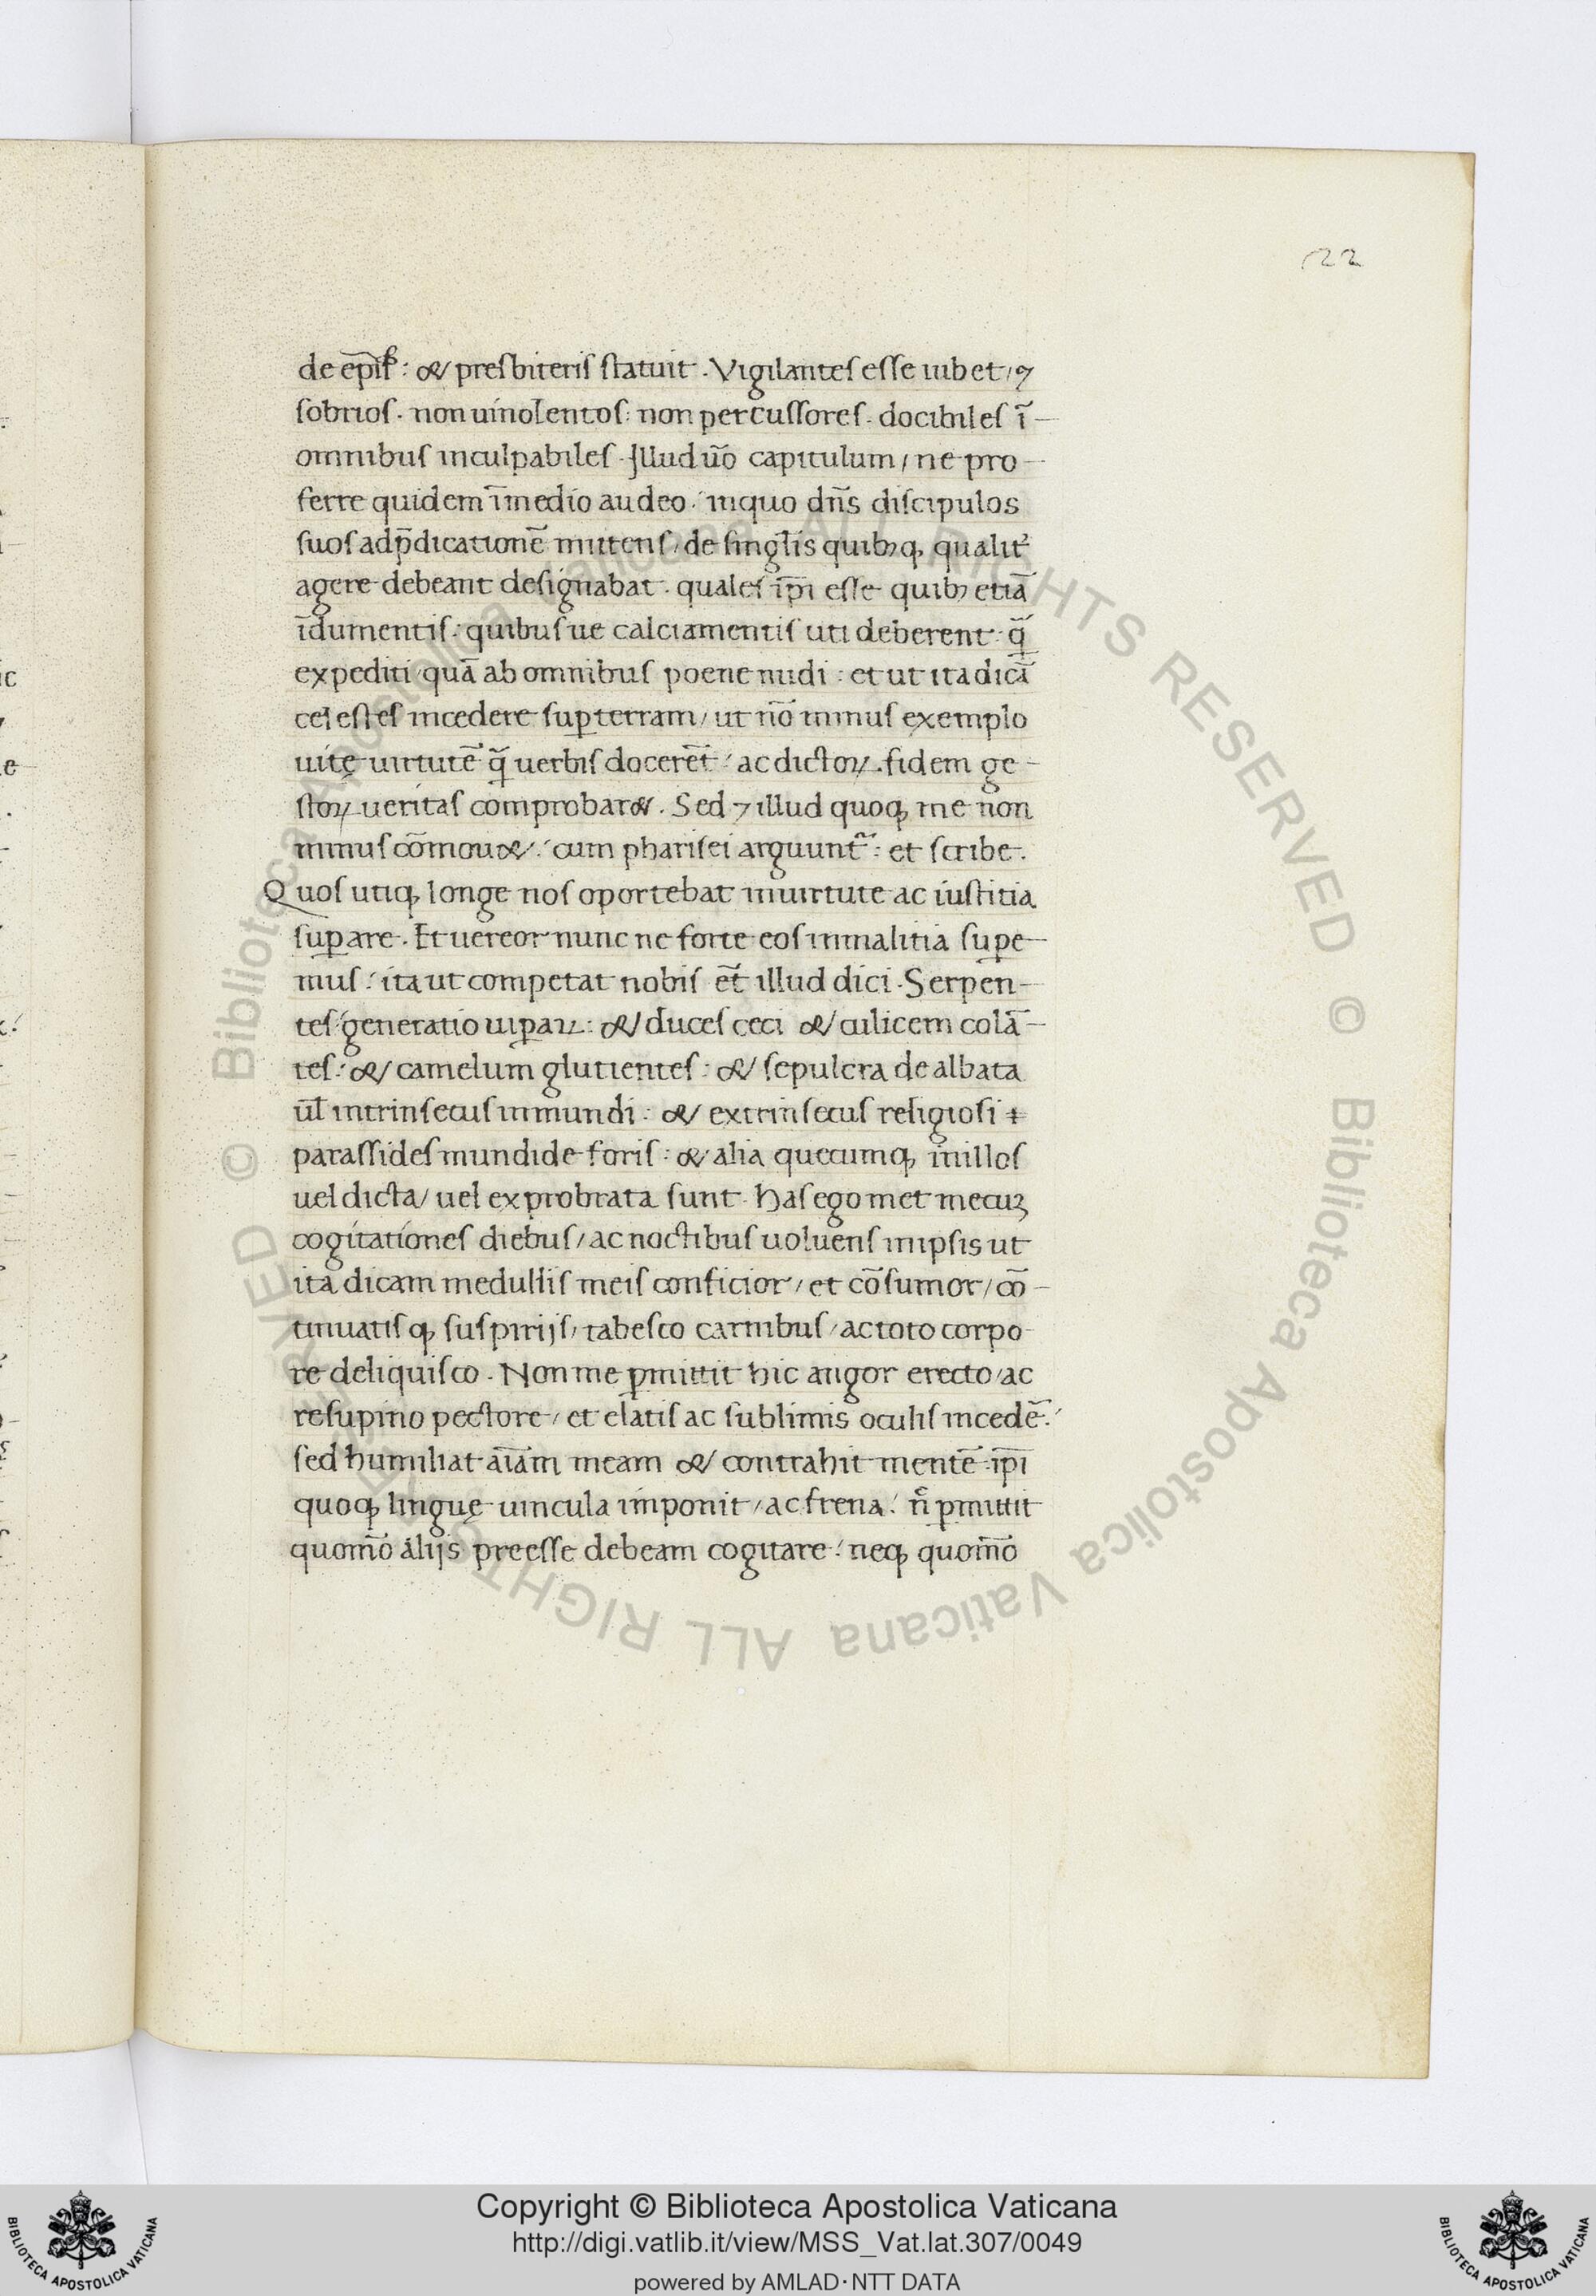 22
de ep̅iſ: & preſbiteriſ ſtatuit. Vigilanteſ eſſe iubet, ⁊
ſobrioſ. non uinolentoſ: non percuſſoreſ. docibileſ ī-
omnibuſ inculpabileſ. Illud uō capitulum, ne pro-
ferre quidem īmedio audeo: inquo dn̄s diſcipuloſ
ſuoſ adp̄dicationē mittenſ, de ſinglis̄ quibꝫqꝫ qualit᷑
agere debeant deſignabat. qualeſ ip̄i eſſe quibꝫ etiā
īdumentiſ: quibuſue calciamentiſ uti deberent: q̄
expediti quā ab omnibuſ poene nudi: et ut ita dicā
celeſteſ incedere ſuꝑterram, ut nō minuſ exemplo
uitę uirtutē q̄ uerbiſ docerēt: ac dictoꝝ fidem ge-
ſtoꝝ ueritaſ comprobar&. Sed ⁊ illud quoqꝫ me non
minuſ cōmou&: cum phariſei arguunt᷑: et ſcribe.
Quoſ utiqꝫ longe noſ oportebat inuirtute ac iuſtitia
ſuꝑare. Et uereor nunc ne forte eoſ inmalitia ſuꝑe-
muſ: ita ut competat nobiſ et̄ illud dici. Serpen-
teſ: generatio uiꝑaꝝ: & duceſ ceci & culicem colā-
teſ: & camelum glutienteſ: & ſepulcra de albata
ul̄ intrinſecuſ inmundi: & extrinſecuſ religioſi ⁊
paraſſideſ mundide foriſ: & alia quecumqꝫ inilloſ
uel dicta, uel exprobrata ſunt. Haſ ego met mecuꝫ
cogitationeſ diebuſ, ac noctibuſ uoluenſ inipſis ut
ita dicam medulliſ meiſ conficior, et cōſumor, cō-
tinuatiſqꝫ ſuſpirijſ, tabeſco carnibuſ, ac toto corpo
re deliquiſco. Non me ꝑmittit hic angor erecto, ac
reſupino pectore, et elatiſ ac ſublimis oculiſ incedē:
ſed humiliat aīam meam & contrahit mentē ip̄i
quoqꝫ linguę uincula imponit, ac frena: n̄ ꝑmittit
quomō alijs preeſſe debeam cogitare: neqꝫ quomō
© Biblioteca Apostolica Vaticana ALL RIGHTS RESERVED © Biblioteca Apostolica Vaticana ALL RIGHTS RESERVED
BIBLIOTECA APOSTOLICA VATICANA
Copyright © Biblioteca Apostolica Vaticana
http://digi.vatlib.it/view/MSS_Vat.lat.307/0049
powered by AMLAD·NTT DATA
BIBLIOTECA APOSTOLICA VATICANA